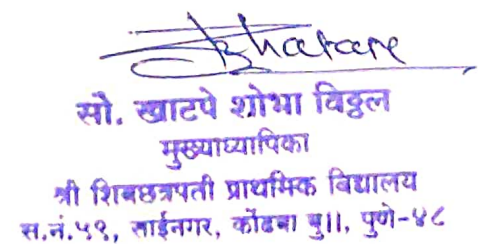 सौ. खाटपे शोभा विठ्ठल
मुख्याध्यापिका
श्री शिवछत्रपती प्राथमिक विद्यालय
स.नं.५९, साईनगर, कोंढवा बु||, पुणे-४८